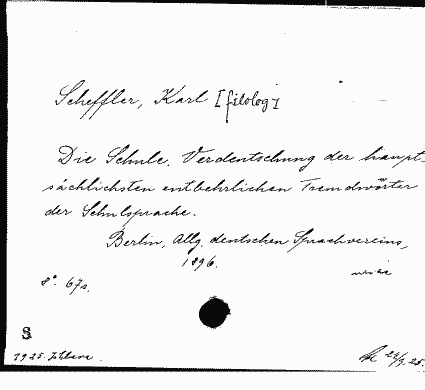 Scheffler, Karl [filolog]
Die Schule. Verdeutschung der haupt-
sächlichsten entbehrlichen Fremdwörter
der Schulsprache.
Berlin, Allg. deutschen Sprachvereins,
1896.
8°. 67s.
S
1925.